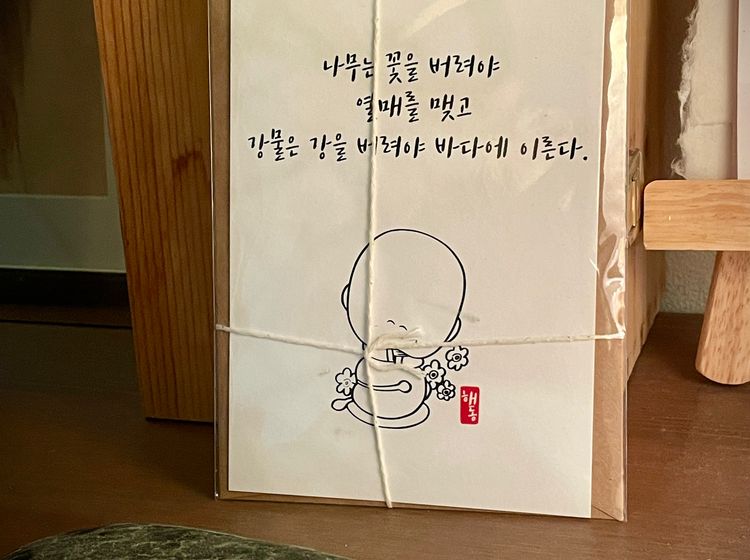 나무는 꽃을 버려야
열매를 맺고
강물은 강을 버려야 바다에 이른다.
해동